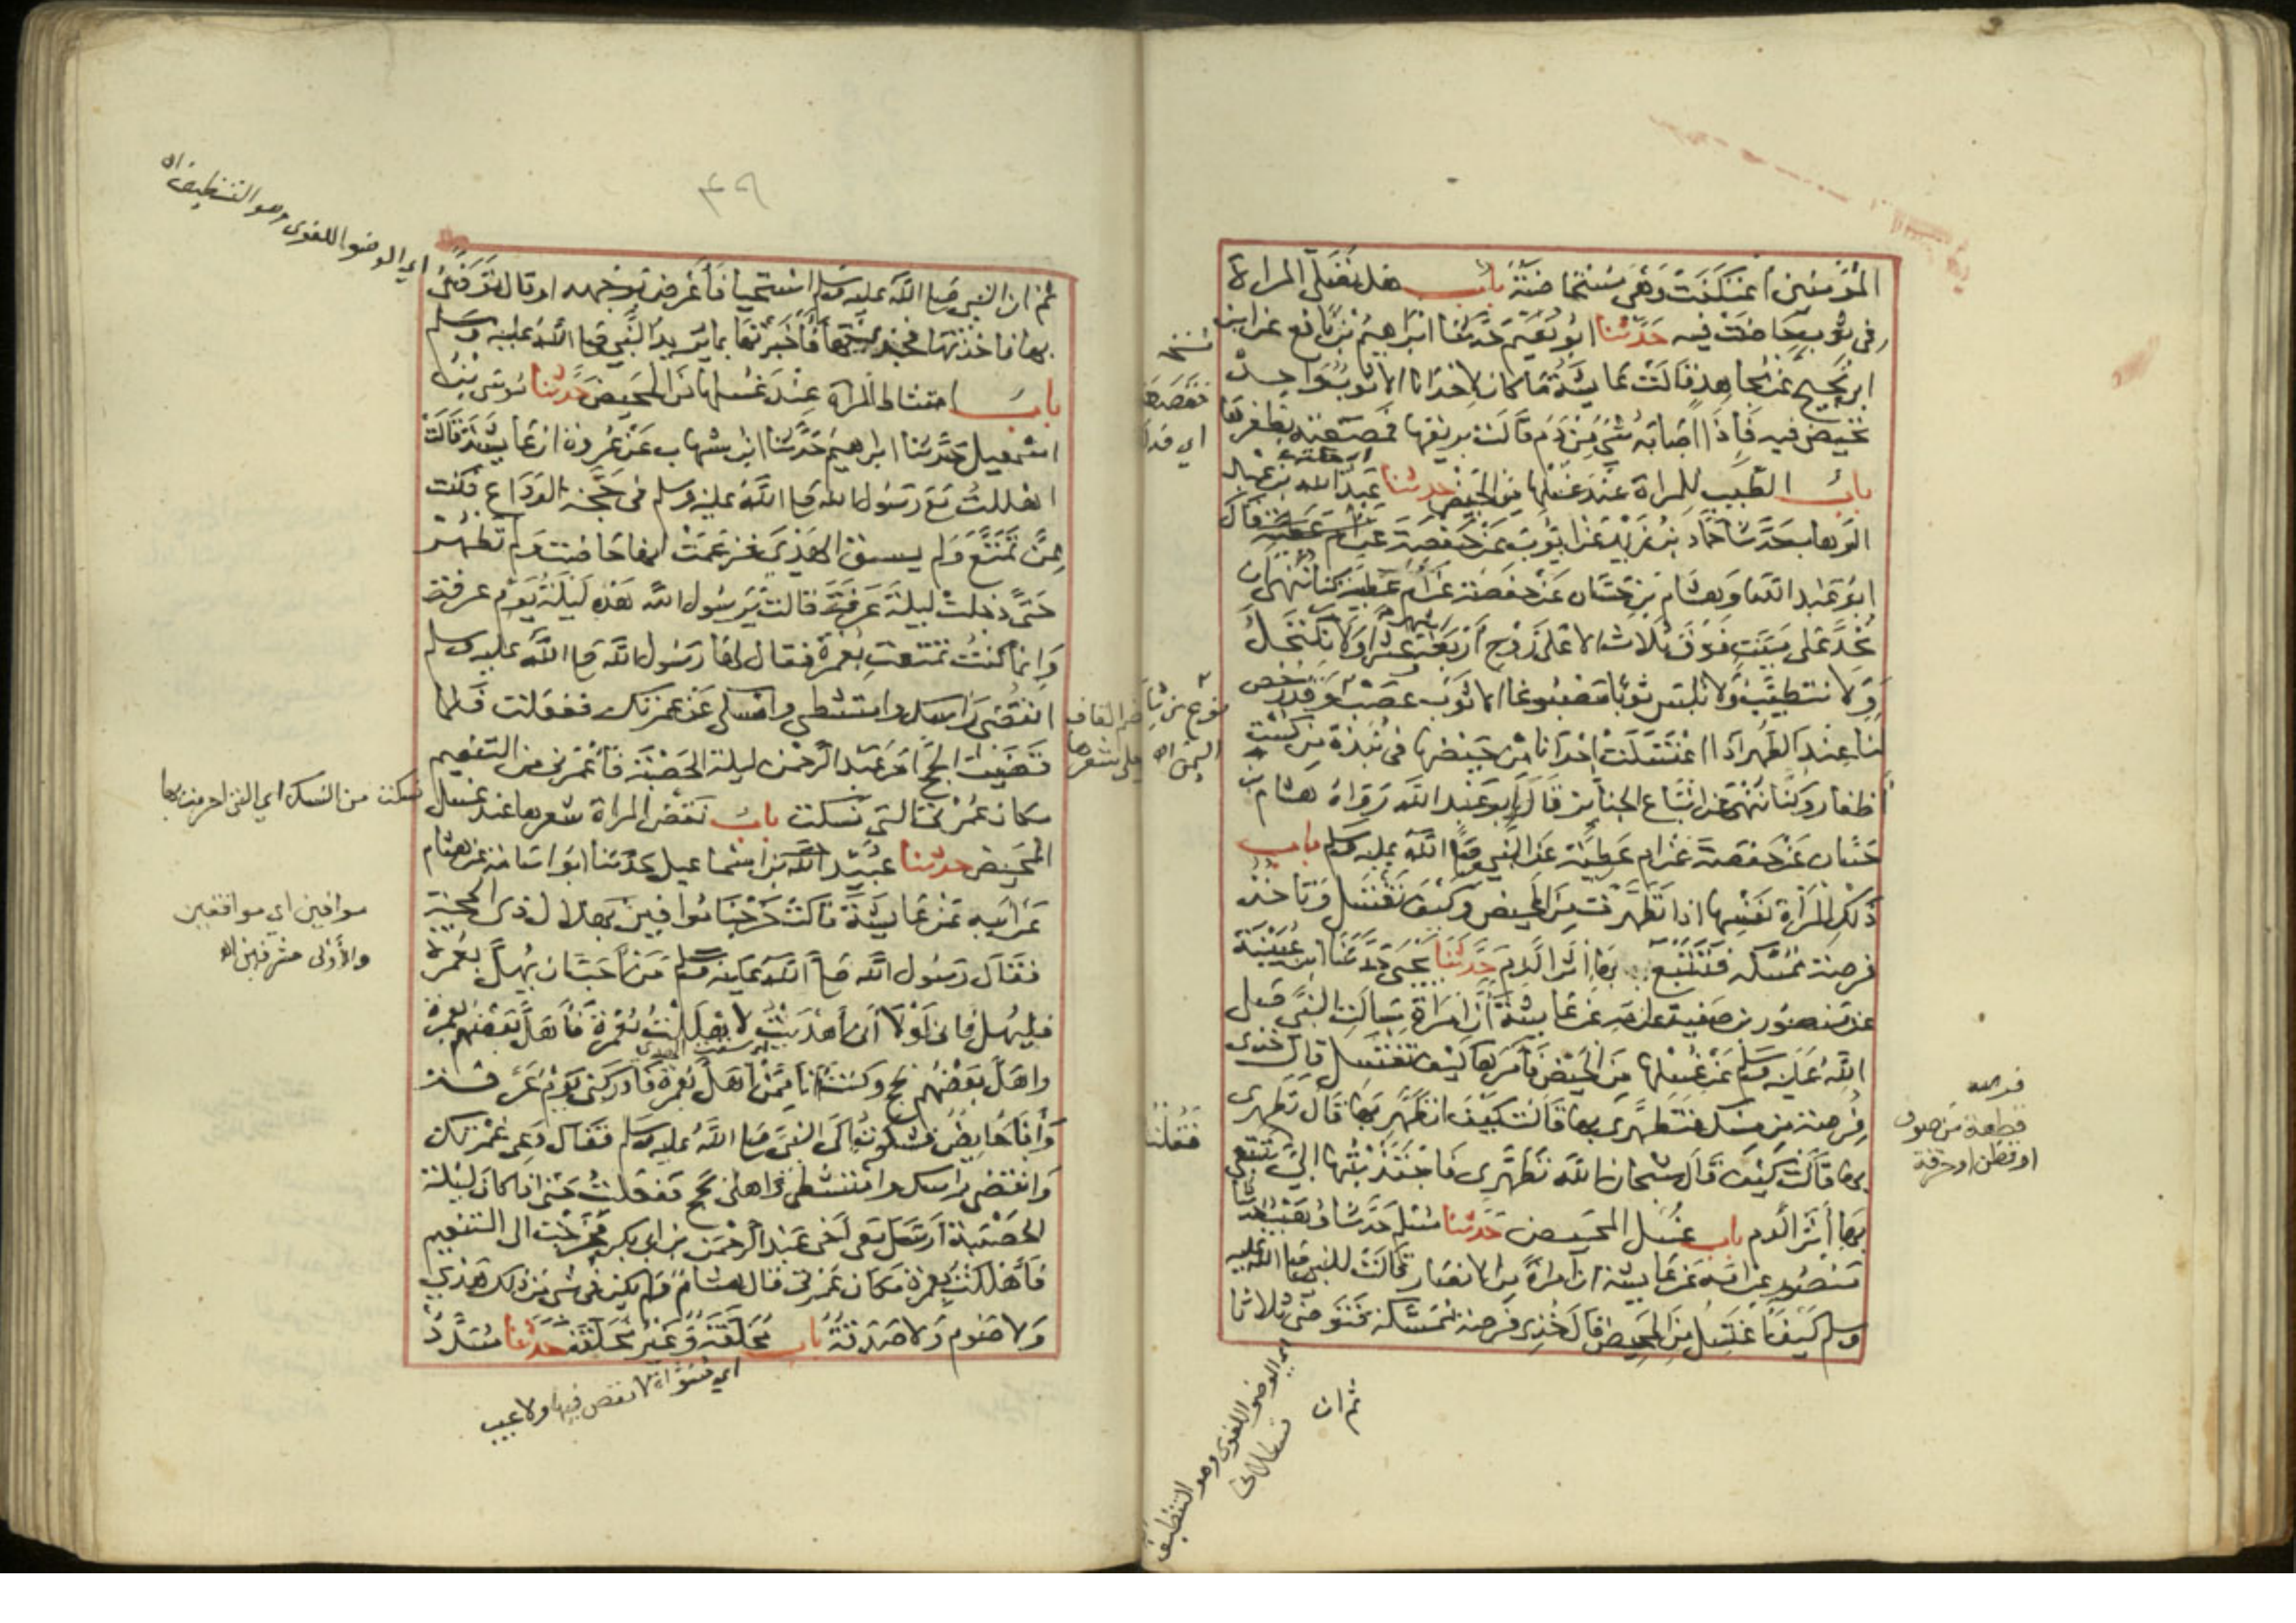 المؤمنين اعتكفت وهي مستحاضة باب هل تصلي المراة
في ثوب حاضت فيه حدثنا ابو نعيم حدثنا ابراهيم بن نافع عن ابن
ابي نجيح عن مجاهد قالت عائشة ما كان لاحدانا الا ثوب واحد
تحيض فيه فاذا اصابه شي من دم قالت بريقها فمصعته بظفرها
باب الطيب للمراة عند غسلها من المحيض حدثنا عبد الله بن عبد
الوهاب حدثنا حماد بن زيد عن ايوب عن حفصة عن ام عطية قال
ابو عبد الله او هشام بن حسان عن حفصة عن ام عطية كنا ننهى ان
نحد على ميت فوق ثلاث الا على زوج اربعة اشهر وعشرا ولا نكتحل
ولا نتطيب ولا نلبس ثوبا مصبوغا الا ثوب عصب وقد رخص
لنا عند الطهر اذا اغتسلت احدانا من محيضها في نبذة من كست
اظفار وكنا ننهى عن اتباع الجنايز قال ابو عبد الله رواه هشام بن
حسان عن حفصة عن ام عطية عن النبي صلى الله عليه وسلم باب
دلك المراة نفسها اذا تطهرت من المحيض وكيف تغتسل وتاخذ
فرصة ممسكة فتتبع بها اثر الدم حدثنا يحيى حدثنا ابن عيينة
عن منصور بن صفية عن امه عن عائشة ان امراة سالت النبي صلى
الله عليه وسلم عن غسلها من المحيض فامرها كيف تغتسل قال خذي
فرصة من مسك فتطهري بها قالت كيف اتطهر بها قال تطهري
بها قالت كيف قال سبحان الله تطهري فاجتذبتها الي تتبعي
بها اثر الدم باب غسل المحيض حدثنا مسلم حدثنا وهيب حدثنا
منصور عن امه عن عائشة ان امراة من الانصار قالت للنبي صلى الله عليه
وسلم كيف اغتسل من المحيض قال خذي فرصة ممسكة فتوضئي ثلاثا
ثم ان
نسخة
فقصعته
نوع من
اليمن اه
فقلت
فرصه
قطعة من صوف
او قطن او خرقة
اي الوضو اللغوي وهو التنظيف
٣٦
ثم ان النبي صلى الله عليه وسلم استحيا فاعرض بوجهه او قال توضئي
بها فاخذتها فجذبتها فاخبرتها بما يريد النبي صلى الله عليه وسلم
باب امتشاط المراة عند غسلها من المحيض حدثنا موسى بن
اسمعيل حدثنا ابراهيم حدثنا ابن شهاب عن عروة ان عائشة قالت
اهللت مع رسول الله صلى الله عليه وسلم في حجة الوداع فكنت
ممن تمتع ولم يسق الهدي فزعمت انها حاضت ولم تطهر
حتى دخلت ليلة عرفة قالت يرسول الله هذه ليلة يوم عرفة
وانما كنت تمتعت بعمرة فقال لها رسول الله صلى الله عليه وسلم
انقضي راسك وامتشطي وامسكي عن عمرتك ففعلت فلما
قضيت الحج امر عبد الرحمن ليلة الحصبة فاعمرني من التنعيم
مكان عمرتي التي نسكت باب نقض المراة شعرها عند غسل
المحيض حدثنا عبيد الله بن اسماعيل حدثنا ابو اسامة عن هشام
عن ابيه عن عائشة قالت خرجنا موافين بهلال ذي الحجة
فقال رسول الله صلى الله عليه وسلم من احب ان يهل بعمرة
فليهل فاني لولا اني اهديت لاهللت بعمرة فاهل بعضهم بعمرة
واهل بعضهم بحج وكنت انا ممن اهل بعمرة فادركني يوم عرفة
وانا حايض فشكوت الى النبي صلى الله عليه وسلم فقال دعي عمرتك
وانقضي راسك وامتشطي واهلي بحج ففعلت حتى اذا كان ليلة
الحصبة ارسل معي اخي عبد الرحمن بن ابي بكر فخرجت الى التنعيم
فاهللت بعمرة مكان عمرتي قال هشام ولم يكن في شي من ذلك هدي
ولا صوم ولا صدقة باب مخلقة وغير مخلقة حدثنا مسدد
اي الوضوء اللغوي وهو التنظيف اه
نسكت من النسك اي التي احرمت بها
موافين اي موافقين
والاولى مشرفين اه
اي مسواة لا نقص فيها ولا عيب